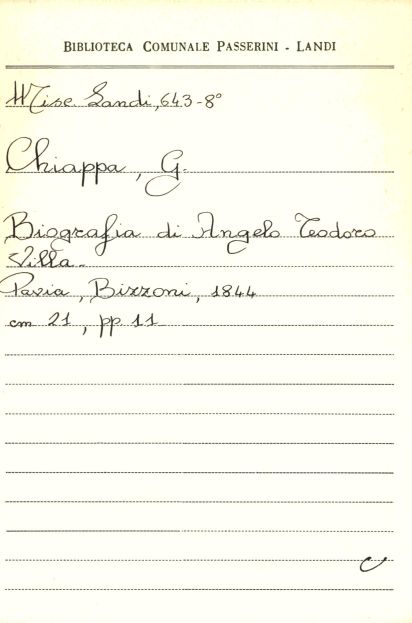 BIBLIOTECA COMUNALE PASSERINI - LANDI
Misc. Landi, 643-8°
Chiappa, G.
Biografia di Angelo Teodoro
Villa.
Pavia, Bizzoni, 1844
cm 21, pp. 11
C